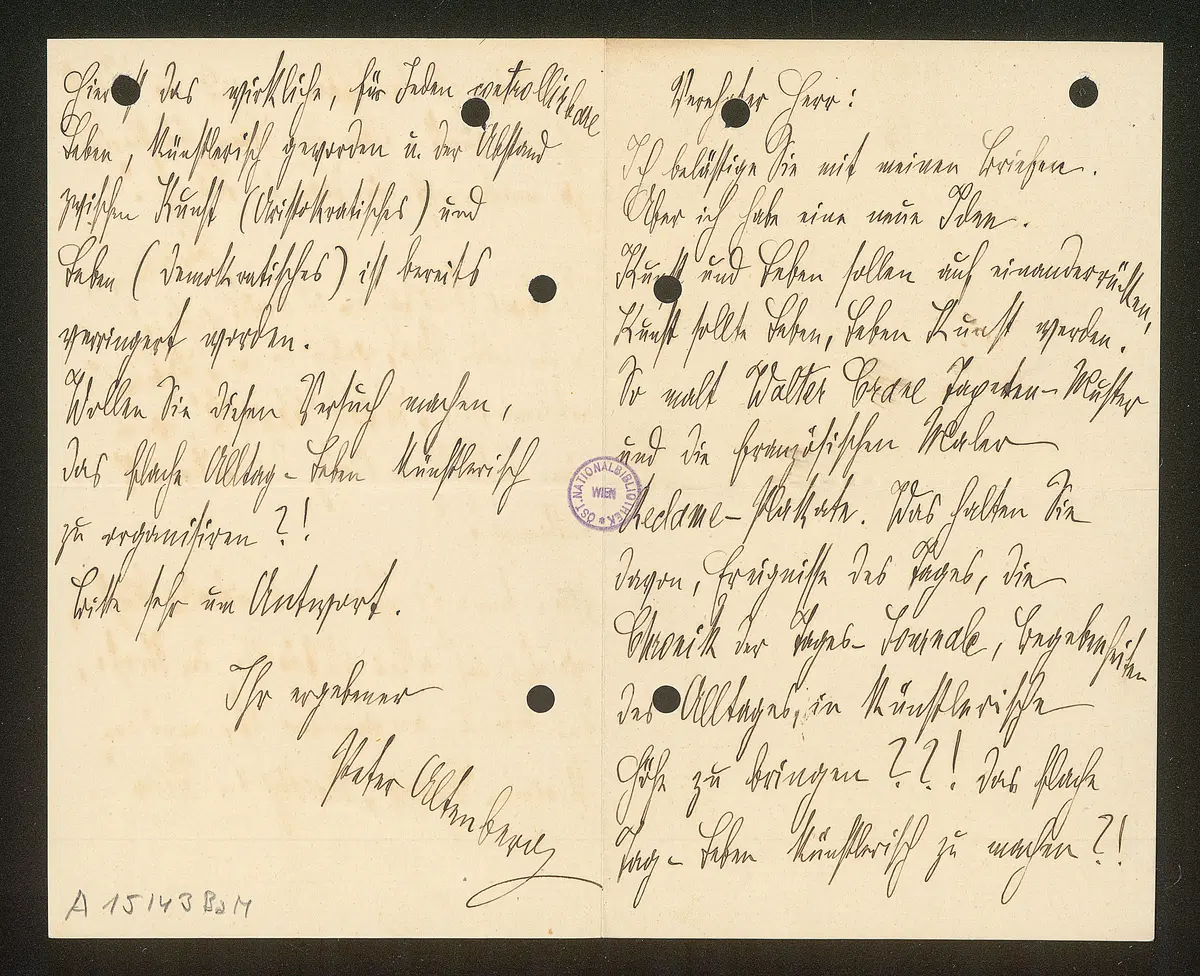 Verehrter Herr:
Ich belästige Sie mit meinen Briefen.
Aber ich habe eine neue Idee.
Kunst und Leben sollen auf einanderrücken,
Kunst sollte Leben, Leben Kunst werden.
So malt Walter Crane Tapeten-Muster
und die französischen Maler
Reclame-Plakate. Was halten Sie
davon, Ereignisse des Tages, die
Chronik der Tages-Journale, Begebenheiten
des Alltages, in künstlerische
Höhe zu bringen ??! Das flache
Tag-Leben künstlerisch zu machen?!
Hier ist das wirkliche, für Jeden controllirbare
Leben, künstlerisch geworden u. der Abstand
zwischen Kunst (Aristokratisches) und
Leben (Demokratisches) ist bereits
verringert worden.
Wollen Sie diesen Versuch machen,
das flache Alltag-Leben künstlerisch
zu organisiren ?!
Bitte sehr um Antwort.
Ihr ergebener
Peter Altenberg
ÖST. NATIONALBIBLIOTHEK
WIEN
A 15143 BaM